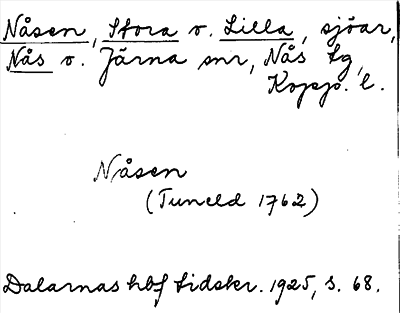 Nåsen, Stora o. Lilla, sjöar,
Nås o. Järna snr, Nås tg,
Kopp. l.
Nåsen
(Tuneld 1762)
Dalarnas hbf tidskr. 1925, s. 68.